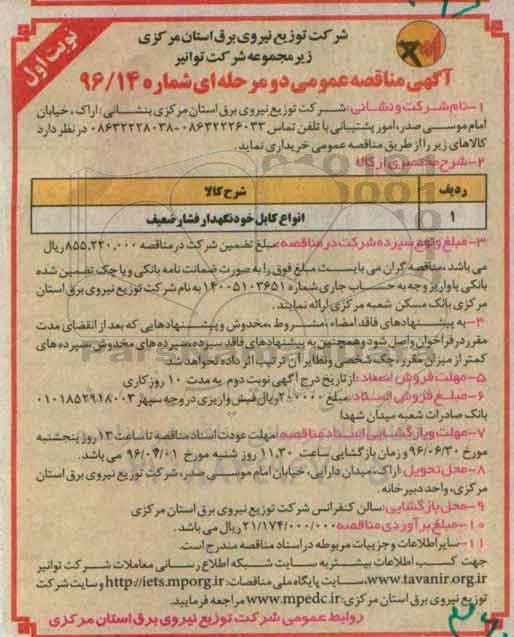 شرکت توزیع نیروی برق استان مرکزی
زیر مجموعه شرکت توانیر
نوبت اول
آگهی مناقصه عمومی دو مرحله ای شماره ۹۶/۱۴
۱-نام شرکت و نشانی: شرکت توزیع نیروی برق استان مرکزی بنشانی: اراک، خیابان
امام موسی صدر، امور پشتیبانی با تلفن تماس ۰۸۶۳۲۲۲۶۰۳۳-۰۸۶۳۲۲۲۸۰۳۸ در نظر دارد
کالاهای زیر را از طریق مناقصه عمومی خریداری نماید.
۲-شرح مختصری از کالا
ردیف شرح کالا
۱ انواع کابل خودنگهدار فشار ضعیف
۳-مبلغ و نوع سپرده شرکت در مناقصه: مبلغ تضمین شرکت در مناقصه ۸۵۵،۲۲۰،۰۰۰ ریال
می باشد، مناقصه گران می بایست مبلغ فوق را به صورت ضمانت نامه بانکی و یا چک تضمین شده
بانکی یا واریز وجه به حساب جاری شماره ۱۴۰۰۵۱۰۳۶۵۱ به نام شرکت توزیع نیروی برق استان
مرکزی بانک مسکن شعبه مرکزی ارائه نمایند.
۴-به پیشنهادهای فاقد امضاء، مشروط، مخدوش و پیشنهادهایی که بعد از انقضای مدت
مقرر در فراخوان واصل شود و همچنین به پیشنهادهای فاقد سپرده، سپرده های مخدوش، سپرده های
کمتر از میزان مقرر، چک شخصی و نظایر آن ترتیب اثر داده نخواهد شد.
۵-مهلت فروش اسناد: از تاریخ درج آگهی نوبت دوم به مدت ۱۰ روز کاری
۶-مبلغ فروش اسناد: مبلغ ۲۰۰۰۰۰ ریال فیش واریزی در وجه سپهر ۰۱۰۱۸۵۲۹۱۸۰۰۳
بانک صادرات شعبه میدان شهدا
۷-مهلت و بازگشایی اسناد مناقصه: مهلت عودت اسناد مناقصه تا ساعت ۱۳ روز پنجشنبه
مورخ ۹۶/۰۶/۳۰ و زمان بازگشایی ساعت ۱۱،۳۰ روز شنبه مورخ ۹۶/۰۷/۰۱ می باشد.
۸-محل تحویل: اراک، میدان دارایی، خیابان امام موسی صدر، شرکت توزیع نیروی برق استان
مرکزی، واحد دبیرخانه.
۹-محل بازگشایی: سالن کنفرانس شرکت توزیع نیروی برق استان مرکزی
۱۰-مبلغ برآوردی مناقصه: ۲۱/۱۷۴/۰۰۰/۰۰۰ ریال می باشد.
۱۱-سایر اطلاعات و جزییات مربوطه در اسناد مناقصه مندرج است.
جهت کسب اطلاعات بیشتر به سایت شبکه اطلاع رسانی معاملات شرکت توانیر
www.tavanir.org.ir، سایت پایگاه ملی مناقصات: http://iets.mporg.ir و سایت شرکت
توزیع نیروی برق استان مرکزی: www.mpedc.ir مراجعه فرمایید.
روابط عمومی شرکت توزیع نیروی برق استان مرکزی